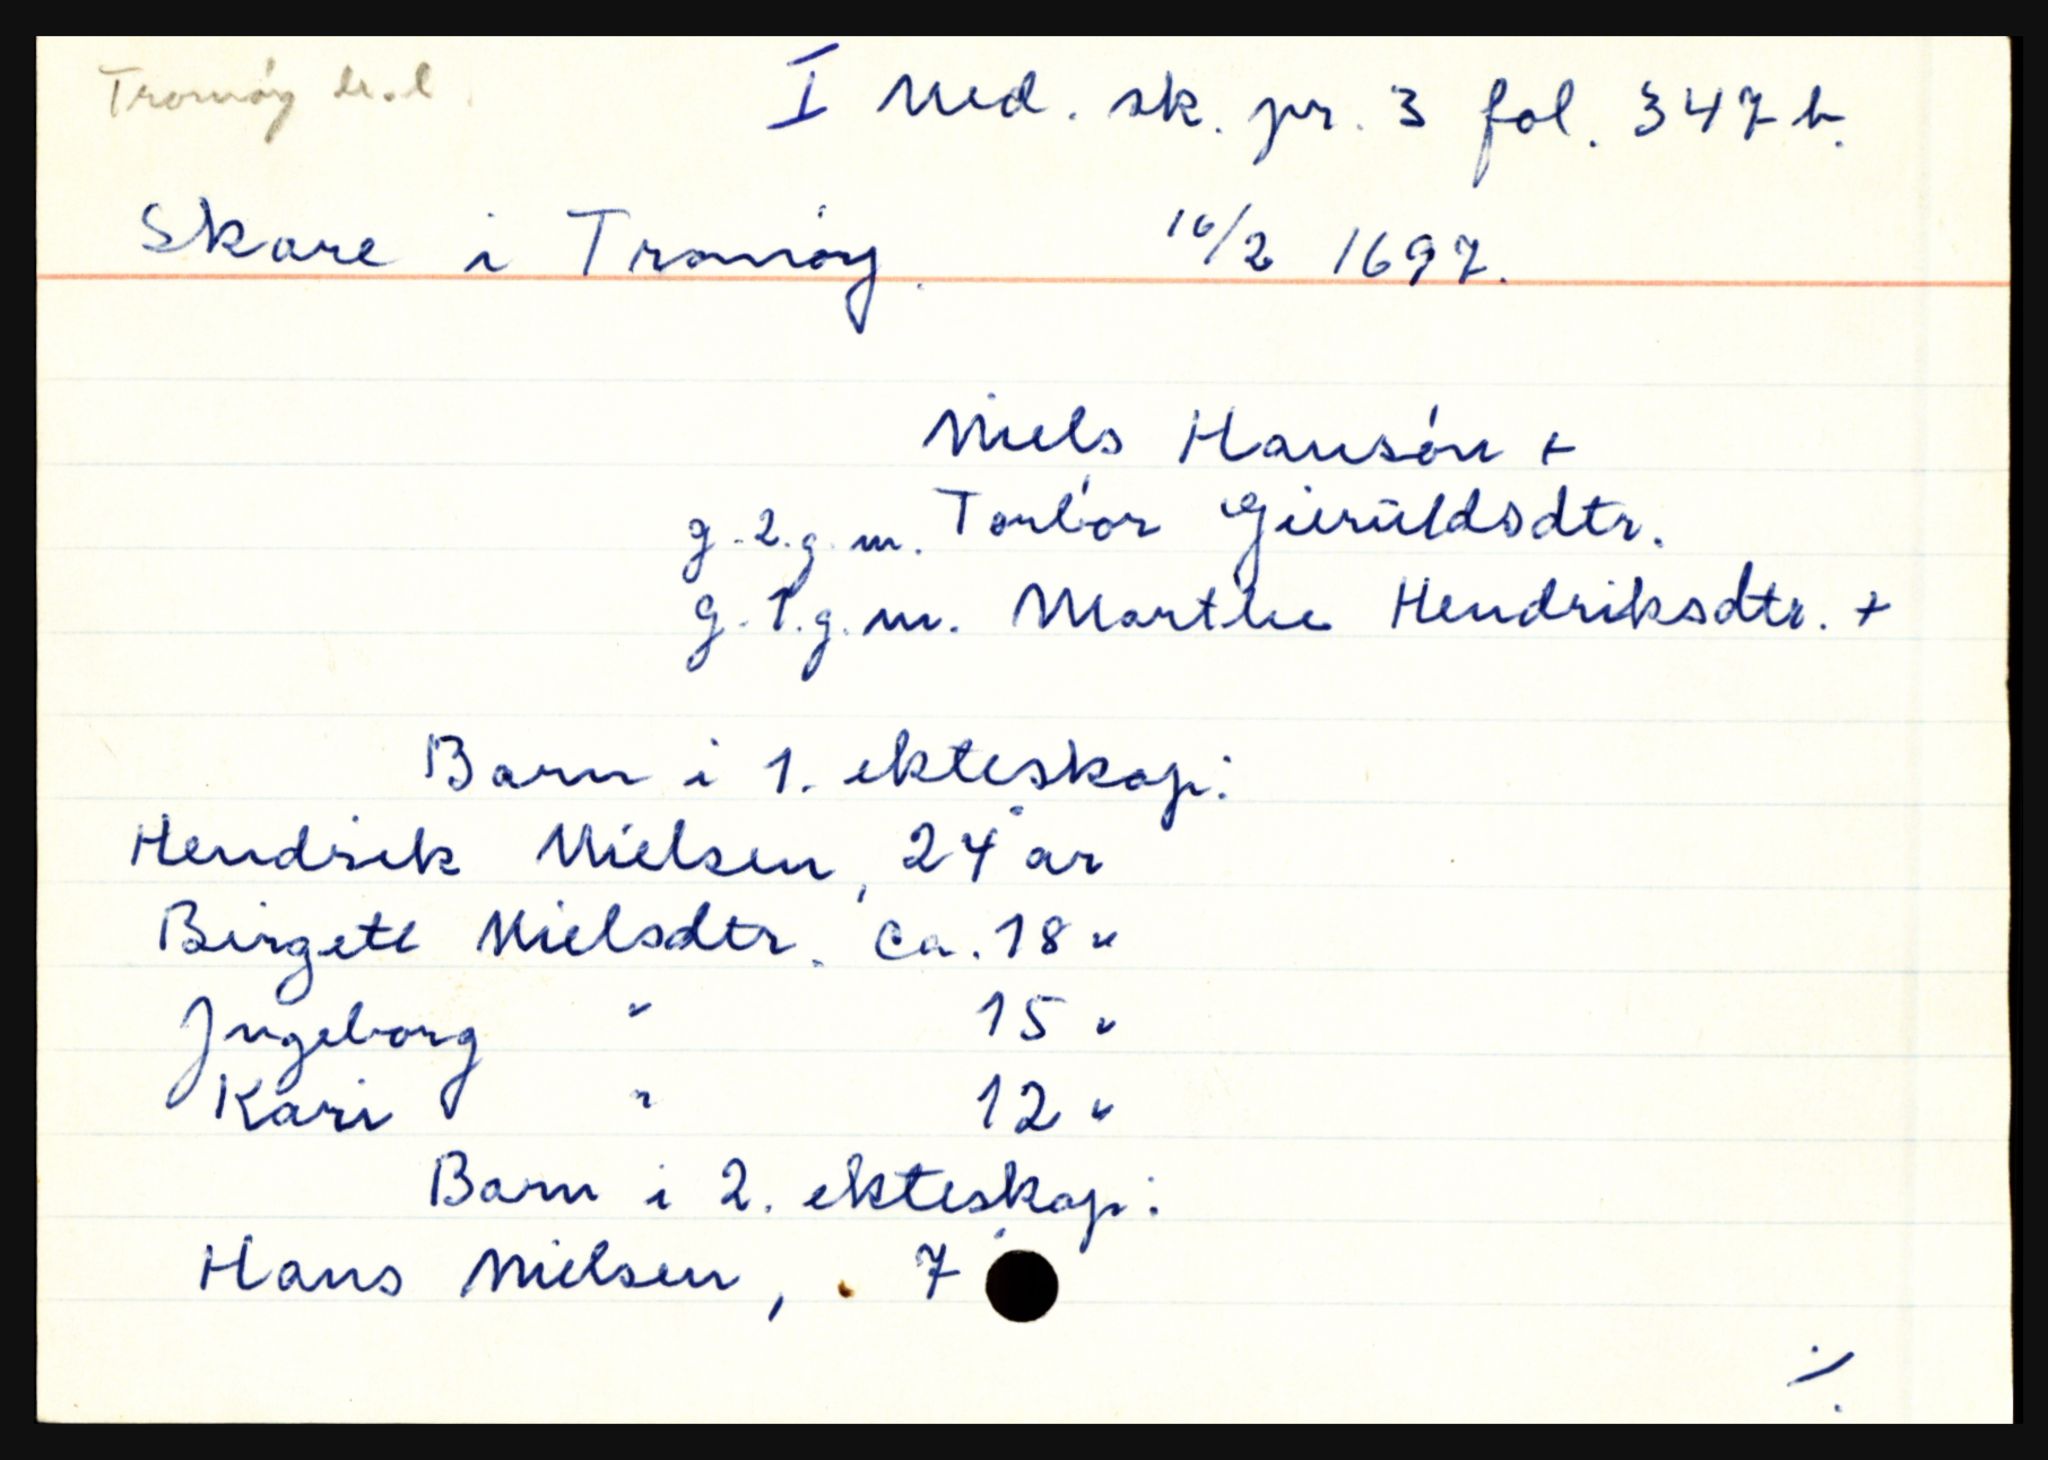 Tromøy lr.l.
I Ned. sk. pr. 3 fol. 347 b.
Skare i Tromøy. 16/2 1697.
Niels Hansøn +
g. 2. g. m. Torbor Gieruldsdtr.
g. 1. g. m. Marthe Hendriksdtr. +
Barn i 1. ekteskap:
Hendrik Nielsen, 24 år
Birgete Nielsdtr. ca. 18 "
Ingeborg " 15 "
Kari " 12 "
Barn i 2. ekteskap:
Hans Nielsen, 7
./.